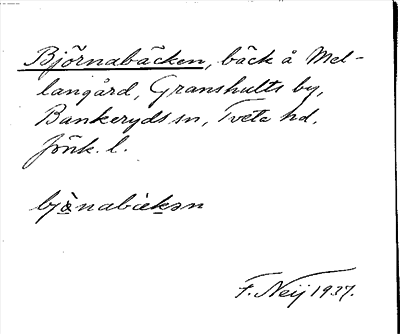 Björnabäcken, bäck å Mel-
langård, Granshults by,
Bankeryds sn, Tveta hd,
Jönk. l.
bjὼnabækən
F. Neij 1937.